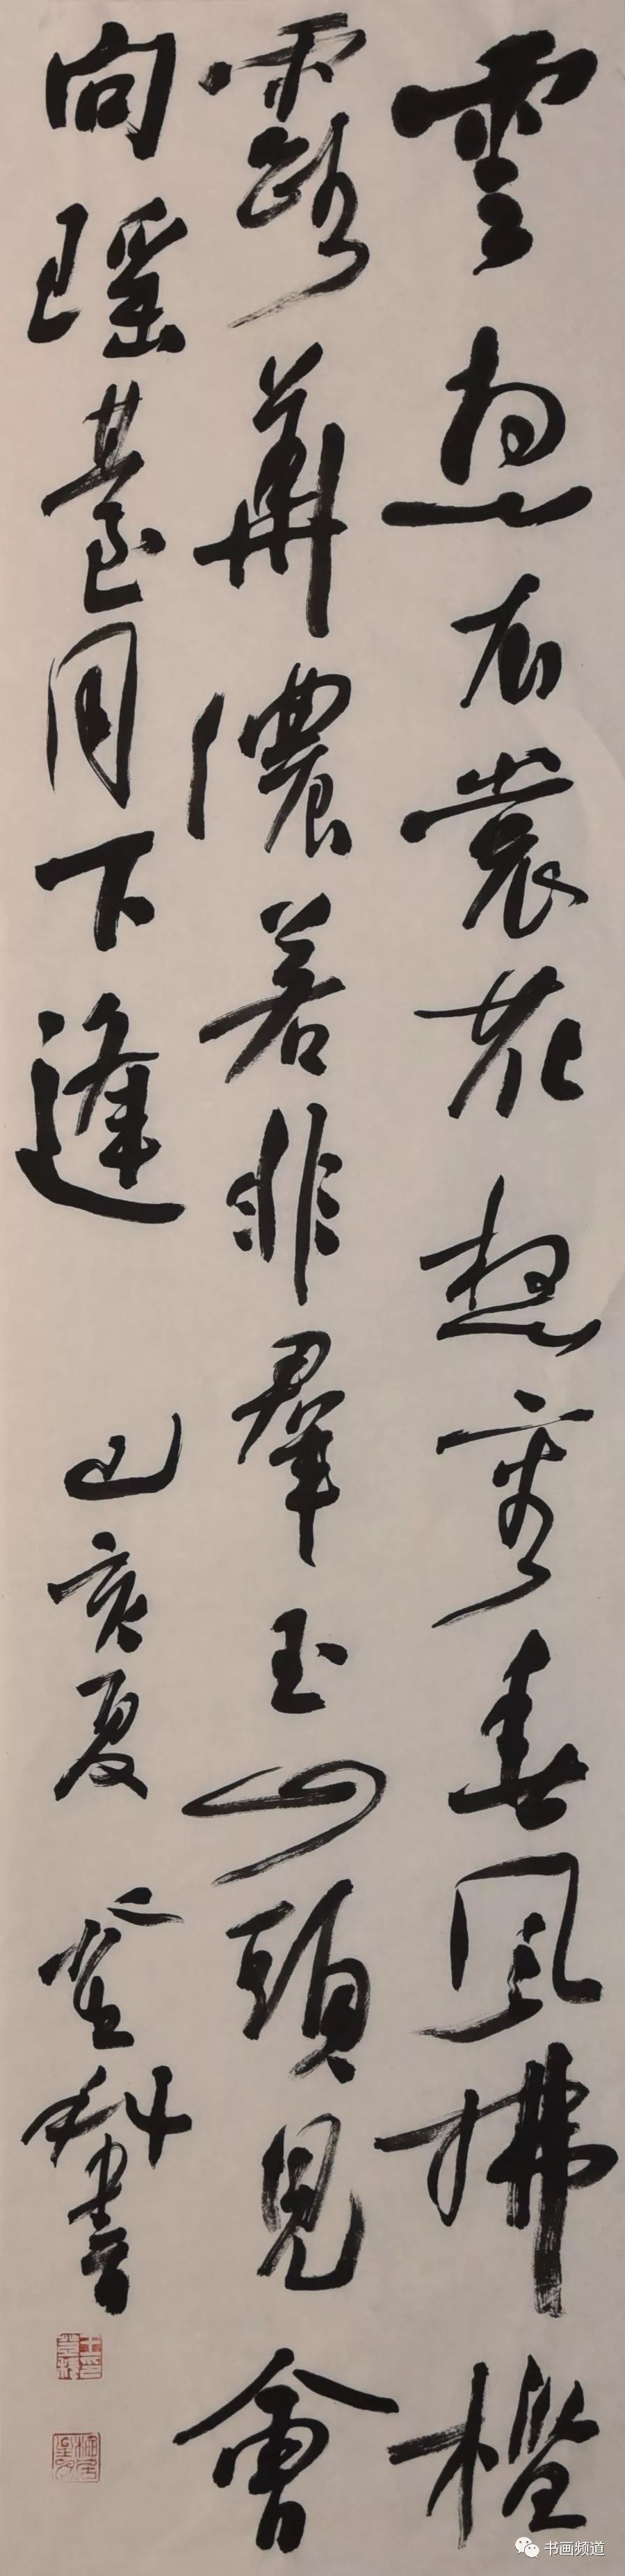 雲想衣裳花想容春風拂檻
露華濃若非羣玉山頭見會
向瑤臺月下逢 己亥夏 登科書
书画频道